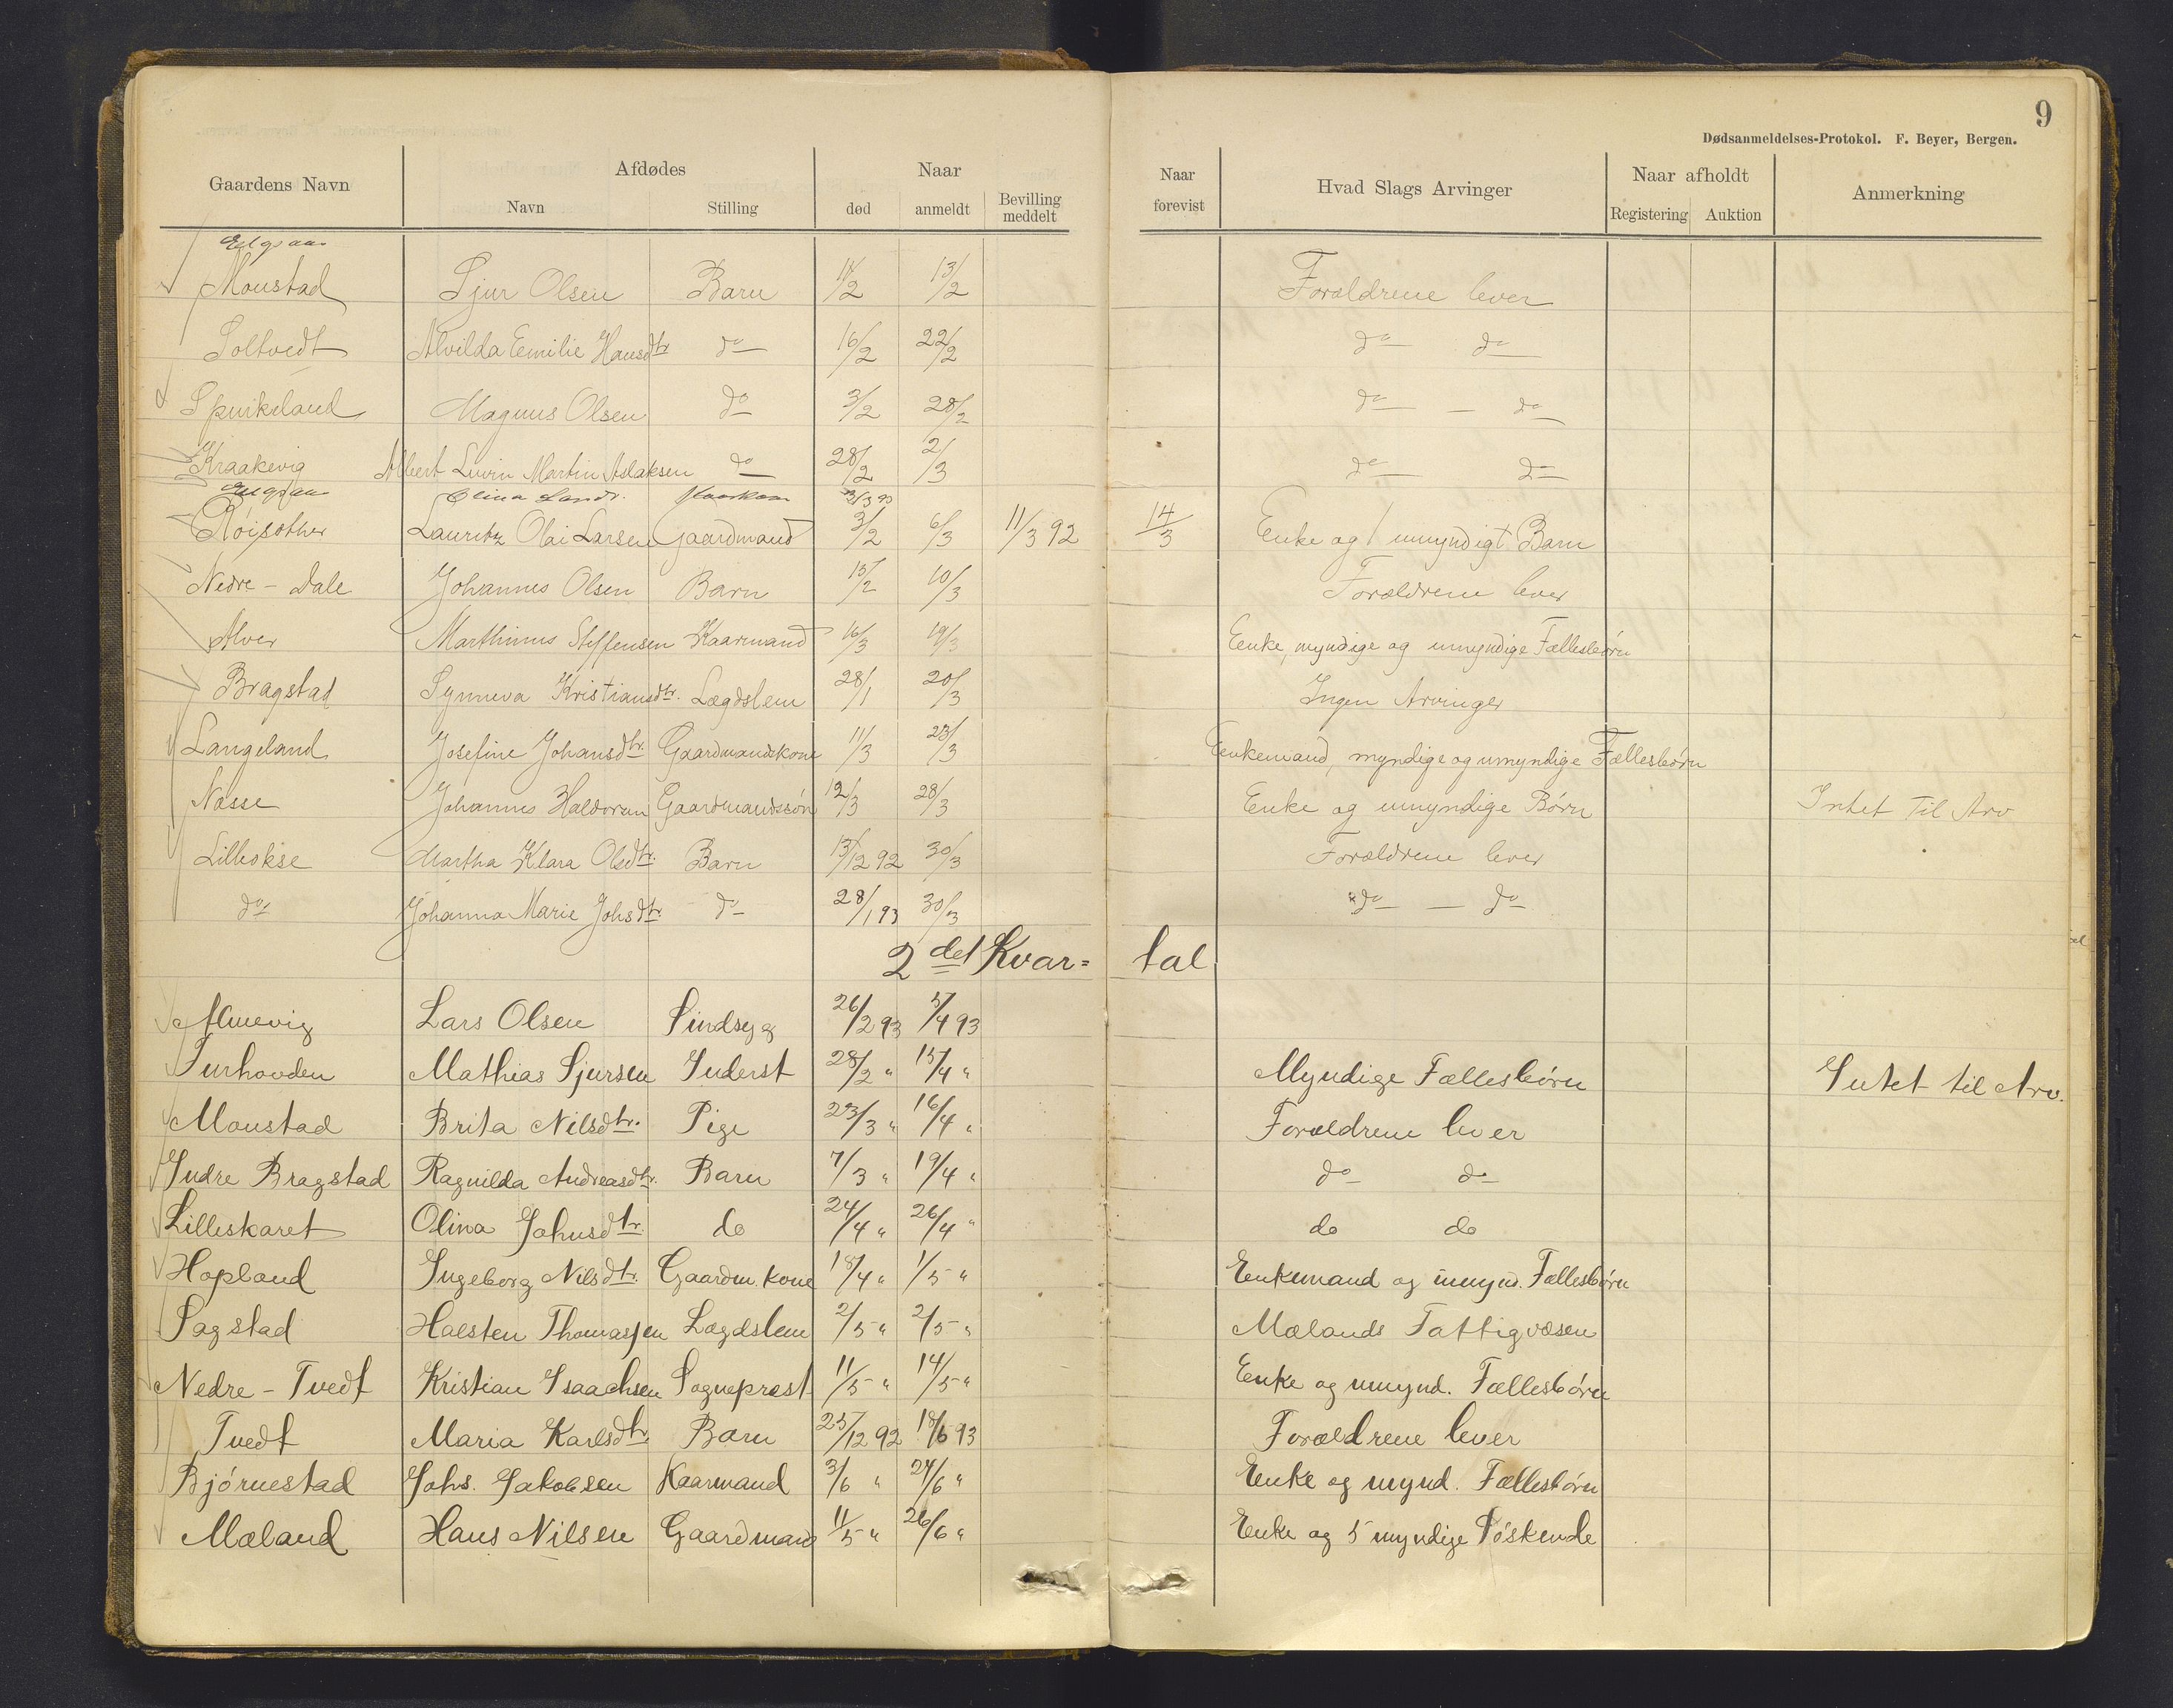 9
Dødsanmeldelses-Protokol. F. Beyer, Bergen.
Gaardens Navn | Afdødes Navn | Stilling | Naar død | anmeldt | Bevilling meddelt | Naar forevist | Hvad Slags Arvinger | Naar afholdt Registering | Auktion | Anmerkning
Moustad Sjur Olsen Barn 11/2 13/2 Forældrene lever
Soltvedt Alvilda Emilie Hansdtr do 16/2 22/2 do do
Spurkeland Magnus Olsen do 3/2 28/2 do — do
Kraakevig Albert Martin Aslaksen do 28/2 2/3 do do
Olina Larsd. 3/3 93
Røisother Lauritz Olai Larsen Gaardmand 3/2 6/3 11/3 92 14/3 Enke og 1 umyndigt Barn
Nedre - Dale Johannes Olsen Barn 15/2 10/3 Forældrene lever
Alver Marthinus Steffensen Kaarmand 16/3 19/3 Enke, myndige og umyndige Fællesbørn
Bragstad Synneva Kristiansdtr. Lægdslem 28/1 20/3 Ingen Arvinger
Langeland Josefine Johansdtr. Gaardmandskone 11/3 23/3 Enkemand, myndige og umyndige Fællesbørn
Næsse Johannes Haldorsen Gaardmandssøn 12/3 28/3 Enke og umyndige Børn Intet til Arv
Lilleokse Martha Klara Olsdtr. Barn 13/12 92 30/3 Forældrene lever
do Johanna Marie Johsdtr. do 28/1 93 30/3 do — do
2det Kvar= tal
Almevig Lars Olsen Sindsyg 26/2 93 5/4 93
Turhovden Mathias Sjursen Inderst 28/2 " 15/4 " Myndige Fællesbørn Intet til Arv.
Moustad Brita Nilsdtr. Pige 23/3 " 16/4 " Forældrene lever
Indre Bragstad Ragnilda Andreasdtr. Barn 7/3 " 19/4 " do do
Lilleskaret Olina Johnsdtr. do 24/4 " 26/4 " do do
Hopland Ingeborg Nilsdtr. Gaardm. kone 18/4 " 1/5 " Enkemand og umynd. Fællesbørn
Sagstad Halsten Thomassen Lægdslem 2/5 " 2/5 " Mælands Fattigvæsen
Nedre - Tvedt Kristian Isaachsen Sogneprest 11/5 " 14/5 " Enke og umynd. Fællesbørn
Tvedt Maria Karlsdtr. Barn 25/12 92 18/6 93 Forældrene lever
Bjørnestad Johs. Jakobsen Kaarmand 3/6 " 24/6 " Enke og mynd. Fællesbørn
Mæland Hans Nilsen Gaardmand 11/5 " 26/6 " Enke og 5 myndige Søskende